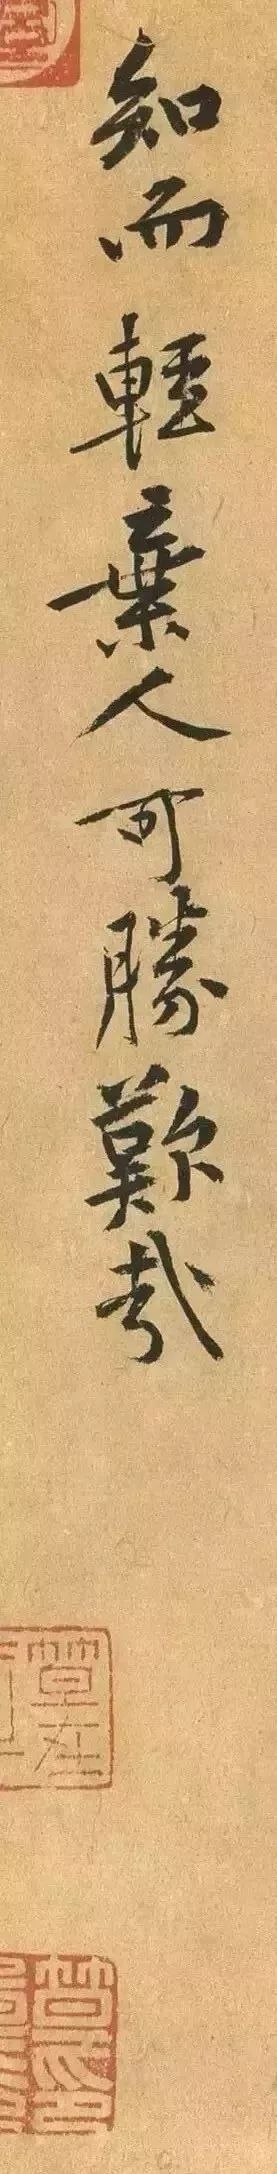 知而輕棄人可勝歎哉